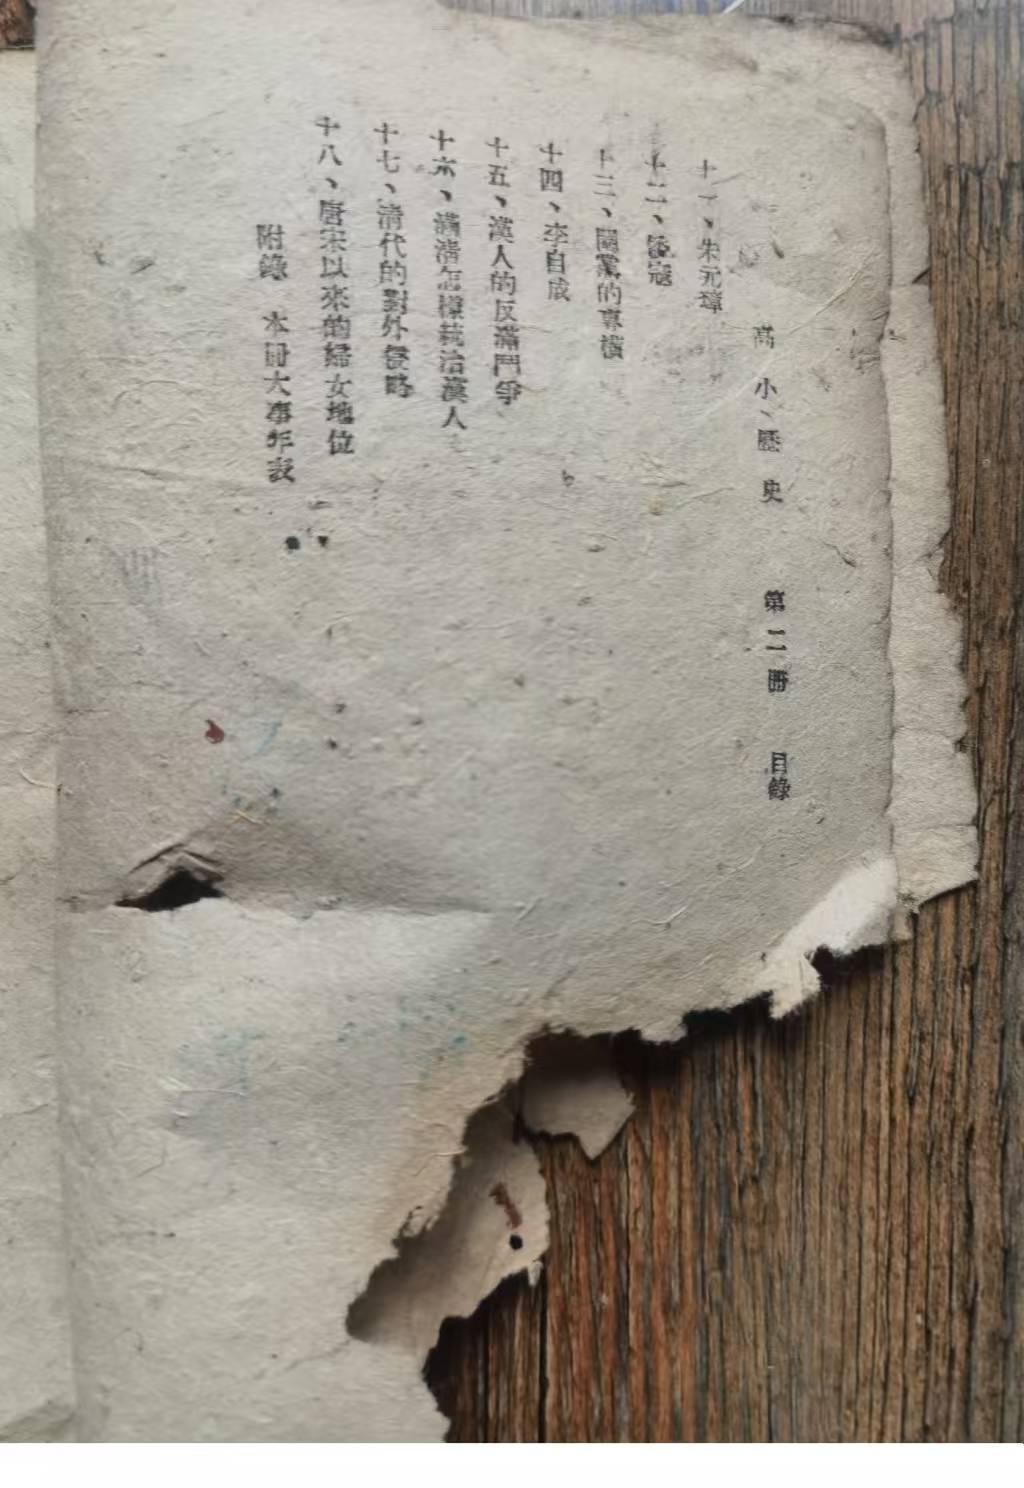 高小、歷史 第二冊 目錄
十一、朱元璋
十二、倭寇
十三、閹黨的專橫
十四、李自成
十五、漢人的反滿鬥爭
十六、滿清怎樣統治漢人
十七、清代的對外侵略
十八、唐宋以來的婦女地位
附錄 本冊大事年表